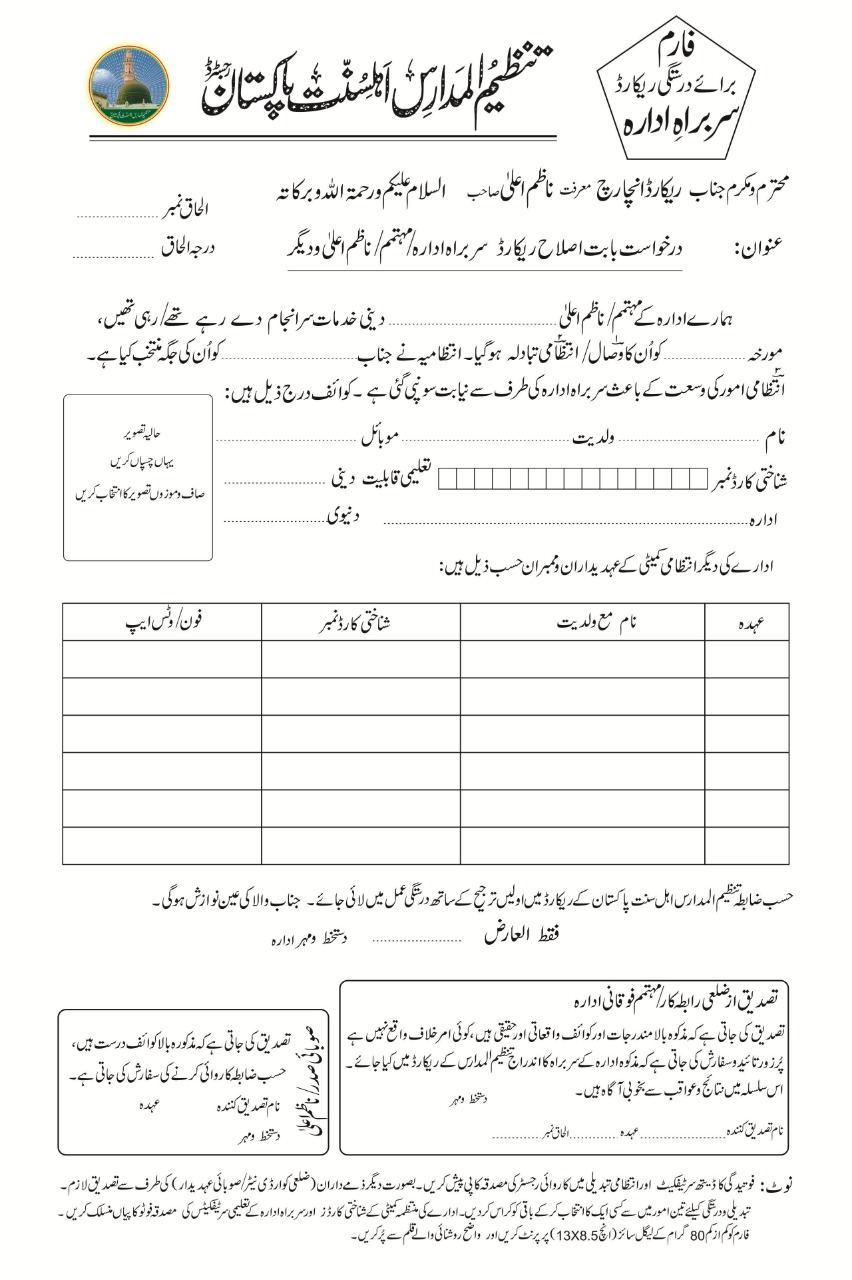 فارم
برائے درستگی ریکارڈ
سربراہِ ادارہ
تنظیمُ المدَارِس اَھلسِنّت پاکِستان رجسٹرڈ
محترم ومکرم جناب ریکارڈ انچارج معرفت ناظم اعلیٰ صاحب السلام علیکم ورحمۃ اللہ وبرکاتہ
الحاق نمبر ....................
عنوان: درخواست بابت اصلاح ریکارڈ سربراہ ادارہ/مہتمم/ناظم اعلیٰ ودیگر
درجہ الحاق ....................
ہمارے ادارہ کے مہتمم/ناظم اعلیٰ .................... دینی خدمات سرانجام دے رہے تھے/رہی تھیں،
مورخہ .................... کو اُن کا وصال/انتظامی تبادلہ ہوگیا۔ انتظامیہ نے جناب .................... کو اُن کی جگہ منتخب کیا ہے۔
انتظامی امور کی وسعت کے باعث سربراہ ادارہ کی طرف سے نیابت سونپی گئی ہے۔ کوائف درج ذیل ہیں:
نام .................... ولدیت .................... موبائل ....................
شناختی کارڈ نمبر تعلیمی قابلیت دینی ....................
ادارہ .................... دنیوی ....................
حالیہ تصویر
یہاں چسپاں کریں
صاف وموزوں تصویر کا انتخاب کریں
ادارے کی دیگر انتظامی کمیٹی کے عہدیداران وممبران حسب ذیل ہیں:
عہدہ نام مع ولدیت شناختی کارڈ نمبر فون/وٹس ایپ
حسب ضابطہ تنظیم المدارس اہل سنت پاکستان کے ریکارڈ میں اولین ترجیح کے ساتھ درستگی عمل میں لائی جائے۔ جناب والا کی عین نوازش ہوگی۔
فقط العارض .................... دستخط ومہر ادارہ
تصدیق از ضلعی رابطہ کار/مہتمم فوقانی ادارہ
تصدیق کی جاتی ہے کہ مذکورہ بالا مندرجات اور کوائف واقعاتی اور حقیقی ہیں، کوئی امر خلاف واقع نہیں ہے
پُرزور تائید وسفارش کی جاتی ہے کہ مذکورہ ادارہ کے سربراہ کا اندراج تنظیم المدارس کے ریکارڈ میں کیا جائے۔
اس سلسلہ میں نتائج وعواقب سے بخوبی آگاہ ہیں۔
دستخط ومہر
نام تصدیق کنندہ .................... عہدہ .................... الحاق نمبر ....................
صوبائی صدر/ناظم اعلیٰ
تصدیق کی جاتی ہے کہ مذکورہ بالا کوائف درست ہیں،
حسب ضابطہ کاروائی کرنے کی سفارش کی جاتی ہے۔
نام تصدیق کنندہ عہدہ
دستخط ومہر
نوٹ: فوتیدگی کا ڈیتھ سرٹیفکیٹ اور انتظامی تبدیلی میں کاروائی رجسٹر کی مصدقہ کاپی پیش کریں۔ بصورت دیگر ذمے داران (ضلعی کوارڈی نیٹر/صوبائی عہدیدار) کی طرف سے تصدیق لازم۔
تبدیلی ودرستگی کیلئے تین امور میں سے کسی ایک کا انتخاب کرکے باقی کو کراس کردیں۔ ادارے کی منتظمہ کمیٹی کے شناختی کارڈز اور سربراہ ادارہ کے تعلیمی سرٹیفکیٹس کی مصدقہ فوٹو کاپیاں منسلک کریں۔
فارم کو کم از کم 80 گرام کے لیگل سائز (13X8.5 انچ) پر پرنٹ کریں اور واضح روشنائی والے قلم سے پُر کریں۔